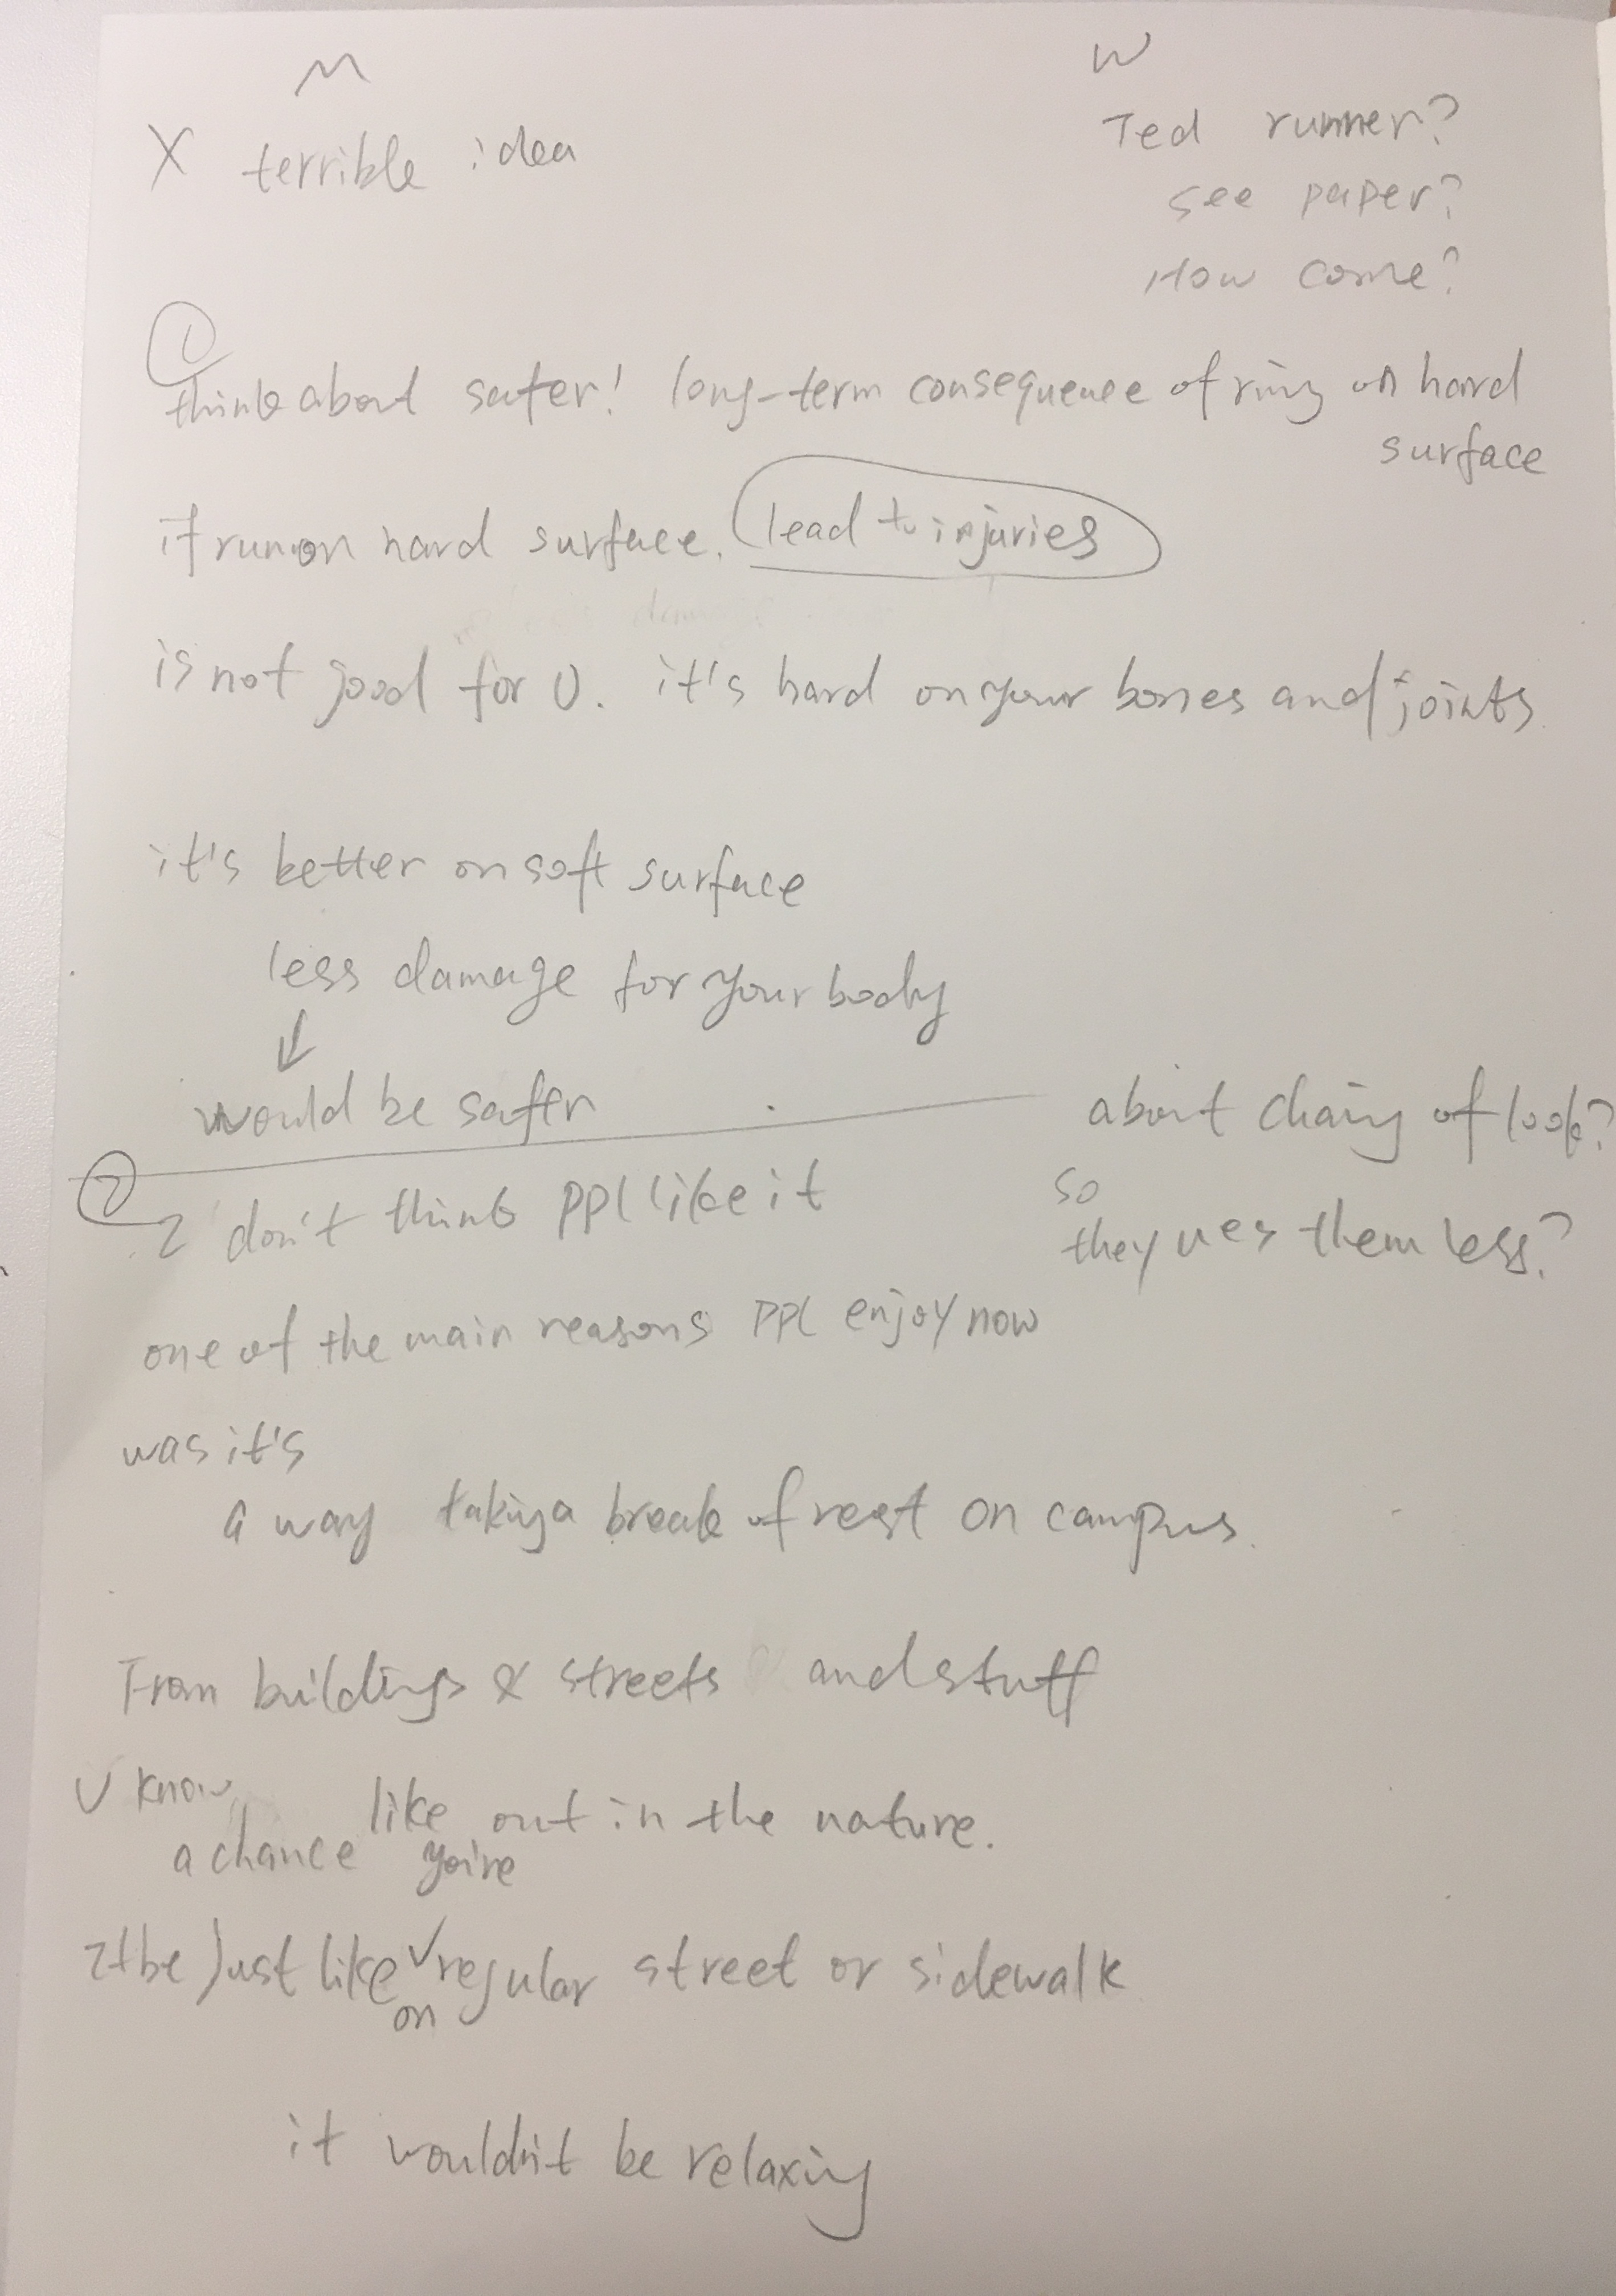 M
W
X terrible idea
Ted runner?
see paper?
How come?
①
think about safer! long-term consequence of ring on hard
surface
if run on hard surface. lead to injuries
is not good for U. it's hard on your bones and joints
it's better on soft surface
less damage for your body
↓
would be safer
about chaing of look?
②
I don't think ppl like it
so
they ues them less?
one of the main reasons PPL enjoy now
was it's
a way taking a break of rest on campus.
From buildings & streets and stuff
U know,
a chance like you're out in the nature.
It be just like on regular street or sidewalk
it wouldn't be relaxing